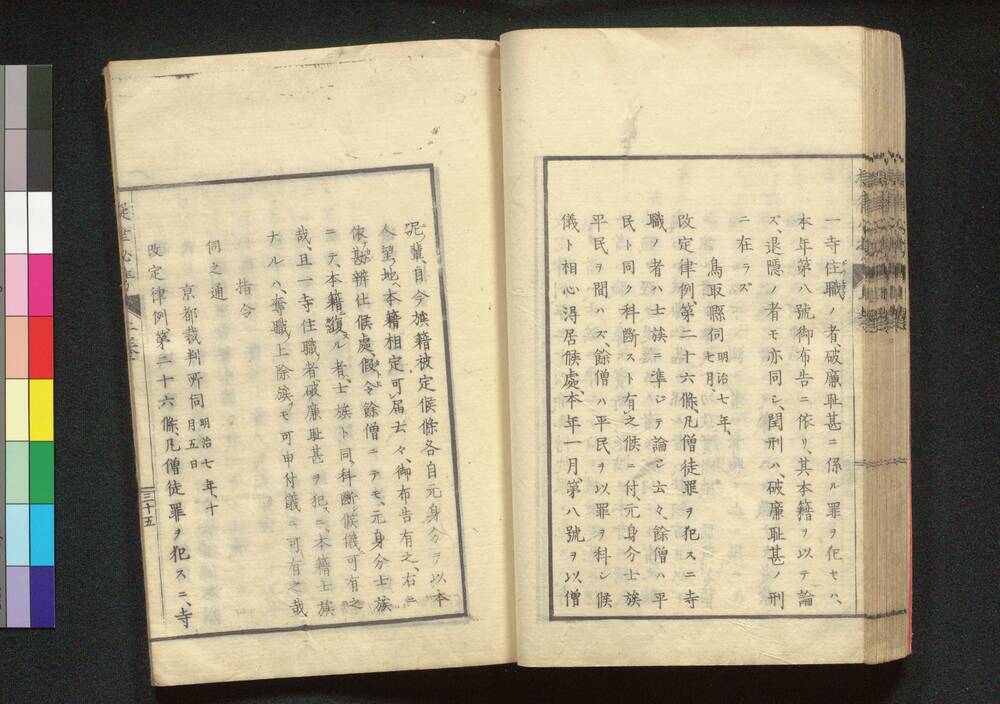 一寺住職ノ者、破廉耻甚ニ係ル罪ヲ犯セハ、
本年第八號御布告ニ依リ、其本籍ヲ以テ論
ス、退隱ノ者モ亦同シ、閏刑ハ、破廉耻甚ノ刑
ニ在ラズ
鳥取縣伺 明治七年、七月、
改定律例、第二十六條、凡僧徒罪ヲ犯スニ寺
職ノ者ハ士族ニ準シテ論シ云々、餘僧ハ平
民ト同ク科斷スト有之候ニ付、元身分士族
平民ヲ間ハズ、餘僧ハ平民ヲ以罪ヲ科シ候
儀ト相心得居候處、本年一月第八號ヲ以僧
尼輩、自今族籍被定候條各自元身分ヲ以本
人望ノ地ヘ本籍相定可届云々、御布告有之、右ニ
依勘辨仕候處、假令餘僧ニテモ、元身分士族
ニテ、本籍ル者ハ、士族ト同ク科斷候儀可有之
哉、且一寺住職者破廉耻甚ヲ犯スニ、本籍士族
ナルハ、奪職ノ上除族ヲモ可申付儀ニ可有之哉
指令
伺之通
京都裁判所伺 明治七年、十月五日
改定律例、第二十六條、凡僧徒罪ヲ犯スニ、寺
三十五